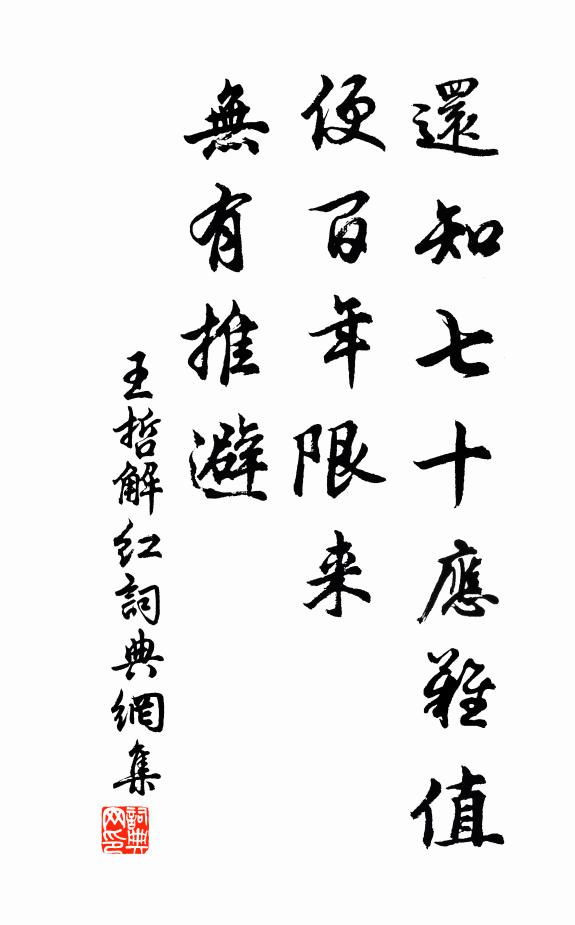 還知七十應難值
便百年限来
無有推避
王哲解紅詞典網集
詞典网印